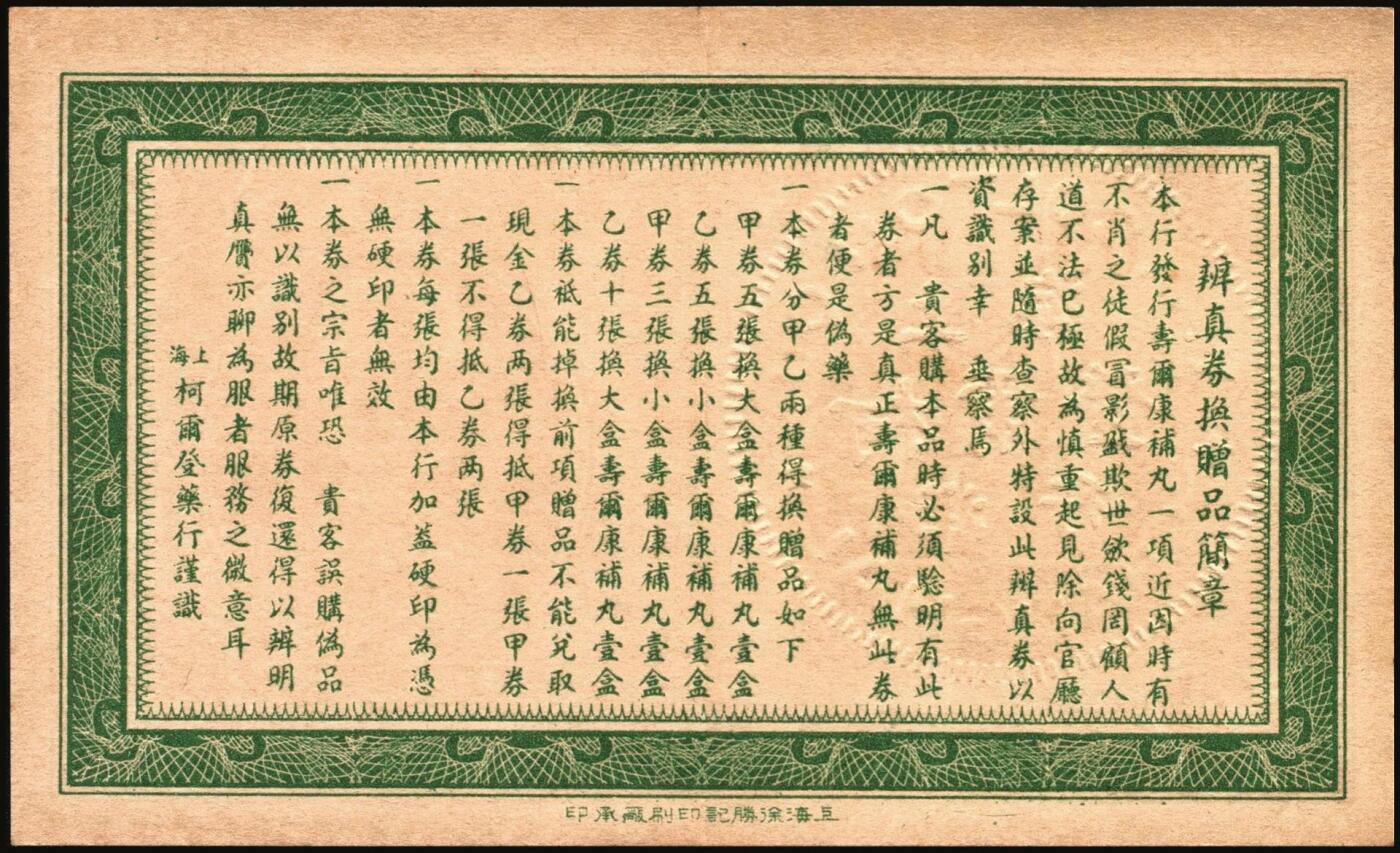 辨真券換贈品簡章
本行發行壽爾康補丸一項近因時有
不肖之徒假冒影戤欺世歛錢罔顧人
道不法已極故為慎重起見除向官廳
存案並隨時查察外特設此辨真券以
資識別幸　垂察焉
一凡　貴客購本品時必須驗明有此
券者方是真正壽爾康補丸無此券
者便是偽藥
一本券分甲乙兩種得換贈品如下
甲券五張換大盒壽爾康補丸壹盒
乙券五張換小盒壽爾康補丸壹盒
甲券三張換小盒壽爾康補丸壹盒
乙券十張換大盒壽爾康補丸壹盒
一本券祇能掉換前項贈品不能兌取
現金乙券两張得抵甲券一張甲券
一張不得抵乙券两張
一本券每張均由本行加蓋硬印為憑
無硬印者無效
一本券之宗旨唯恐　貴客誤購偽品
無以識別故期原券復還得以辨明
真贋亦聊為服者服務之微意耳
上海柯爾登藥行謹識
上海徐勝記印刷廠承印